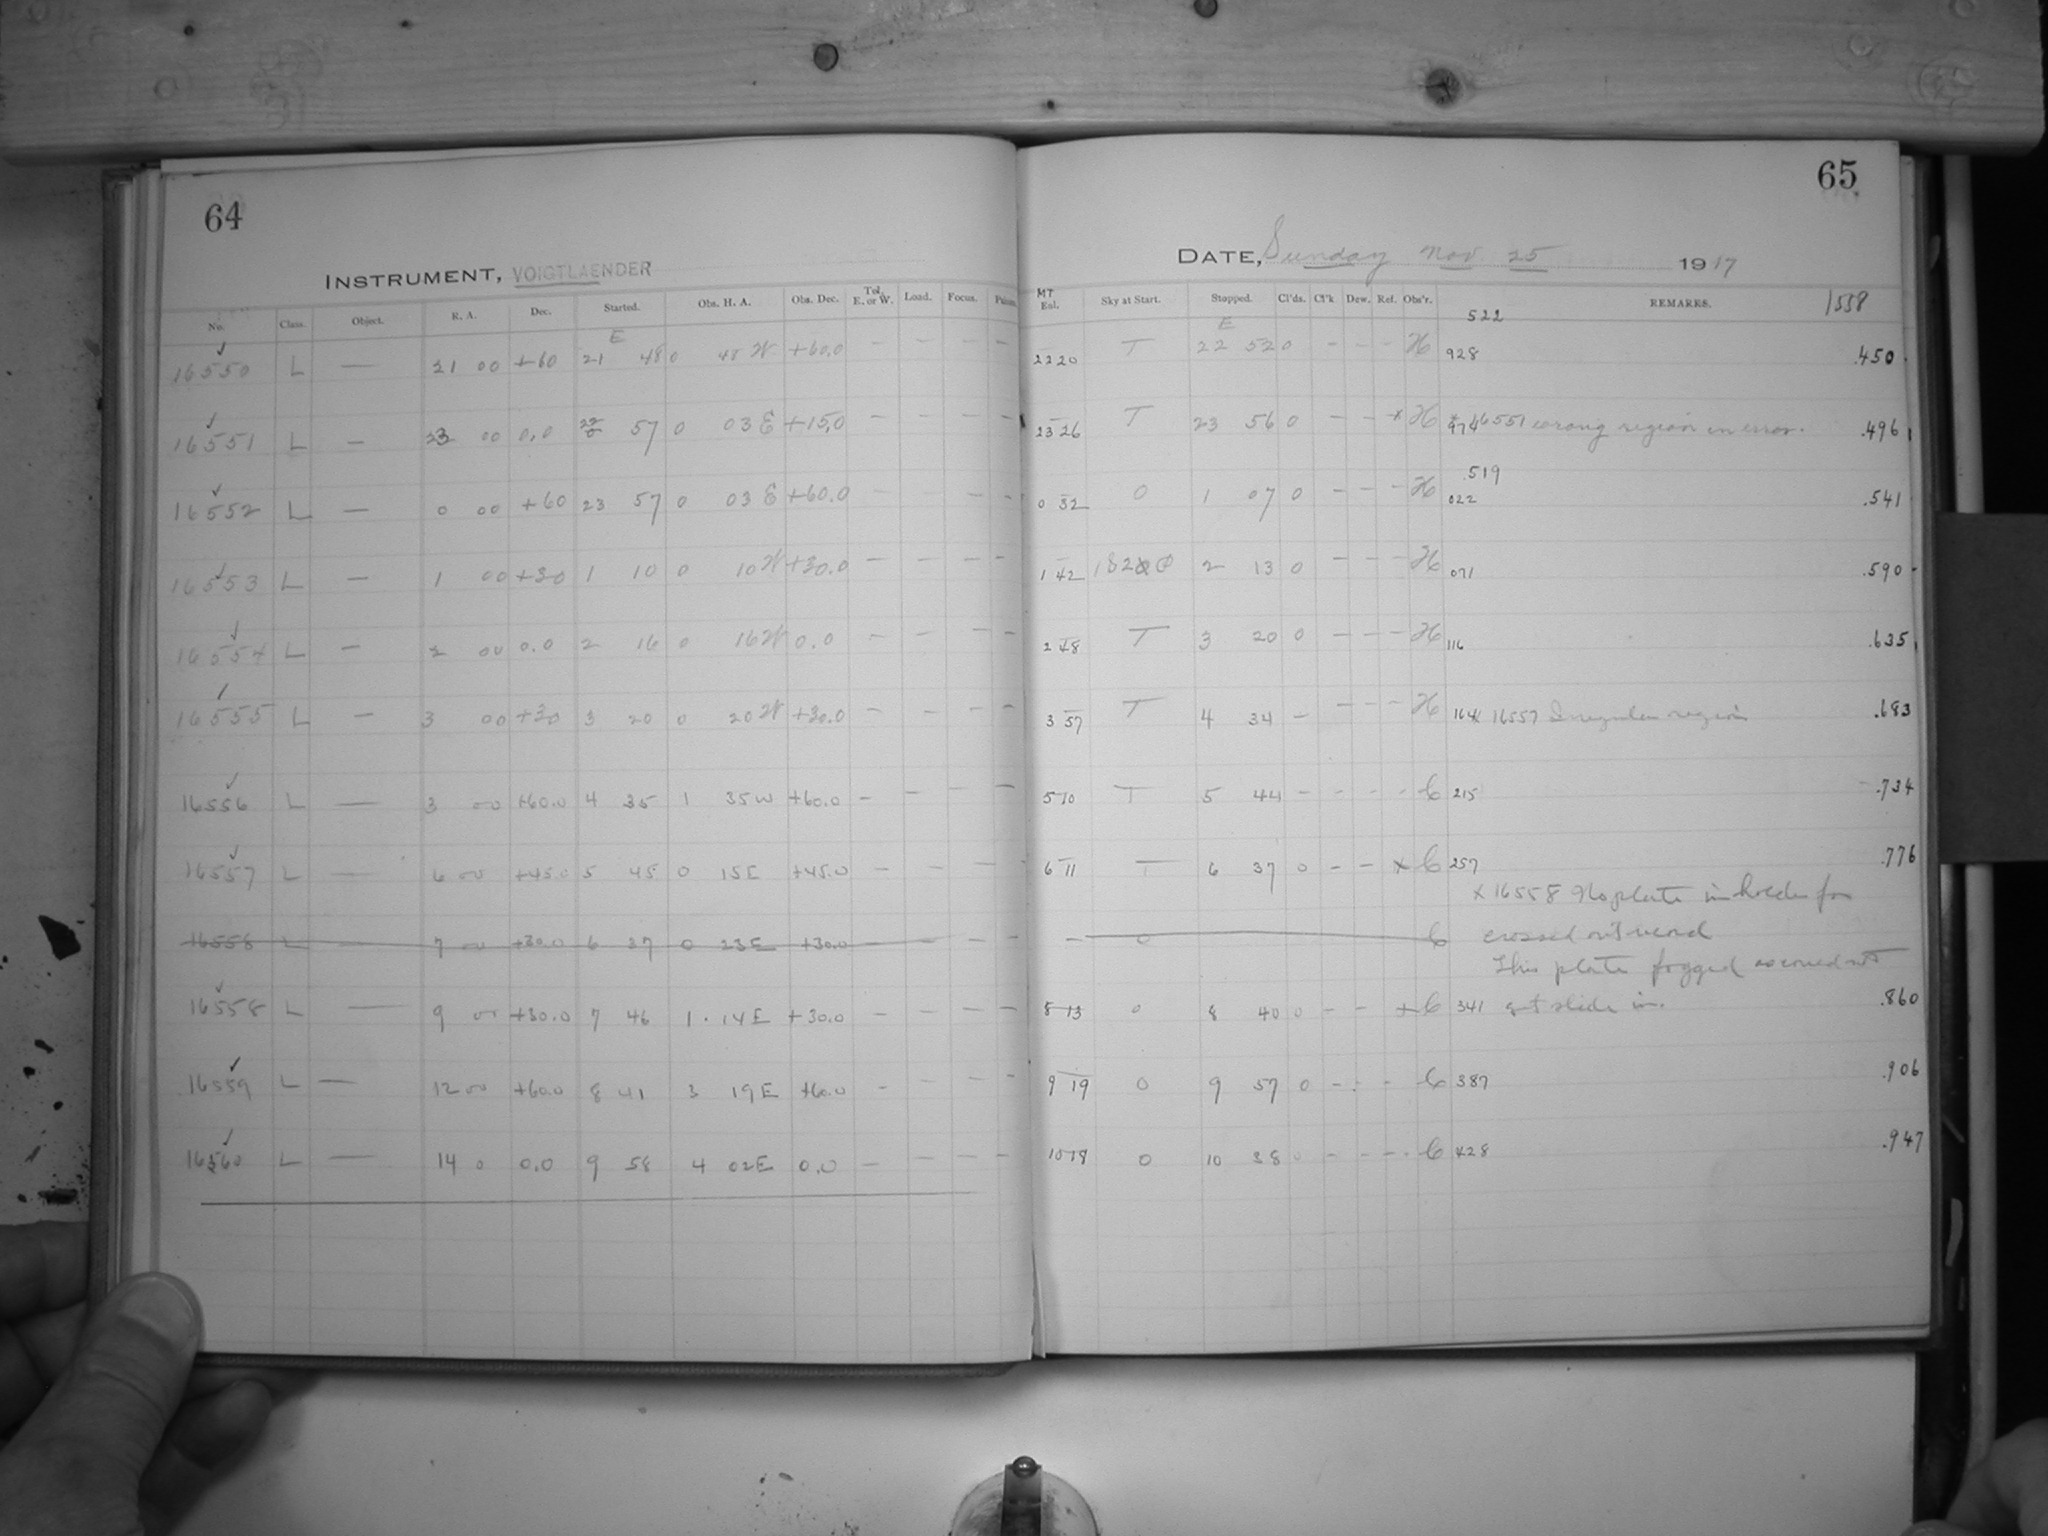 64
INSTRUMENT, VOIGTLAENDER
No. Class. Object. R. A. Dec. Started. Obs. H. A. Obs. Dec. Tel. E. or W. Load. Focus.
E
16550 L — 21 00 +60 21 48 0 48 W +60.0 — — — —
16551 L — 23 00 0.0 22 57 0 03 E +15.0 — — — —
16552 L — 0 00 +60 23 57 0 03 E +60.0 — — — —
16553 L — 1 00 +30 1 10 0 10 W +30.0 — — — —
16554 L — 2 00 0.0 2 16 0 16 W 0.0 — — — —
16555 L — 3 00 +30 3 20 0 20 W +30.0 — — — —
16556 L — 3 00 +60.0 4 35 1 35 W +60.0 — — — —
16557 L — 6 00 +45.0 5 45 0 15 E +45.0 — — — —
16558 L — 7 00 +30.0 6 37 0 23 E +30.0 — — — —
16558 L — 9 00 +30.0 7 46 1 14 E +30.0 — — — —
16559 L — 12 00 +60.0 8 41 3 19 E +60.0 — — — —
16560 L — 14 0 0.0 9 58 4 02 E 0.0 — — — —
65
DATE, Sunday Nov 25 1917
MT Enl. Sky at Start. Stopped. Cl'ds. Cl'k Dew. Ref. Obs'r. REMARKS. 1558
E 522
22 20 T 22 52 0 - - - H 928 .450
23 26 T 23 56 0 - - x H 974 x 16551 wrong region in error. .496
519
0 32 0 1 07 0 - - - H 022 .541
1 42 2 13 0 - - - H 071 .590
2 48 T 3 20 0 - - - H 116 .635
3 57 T 4 34 - - - - H 164 x 16557 Irregular region .683
5 10 T 5 44 - - - - C 215 .734
6 11 T 6 37 0 - - x C 257 .776
x 16558 No plate in holder for
— 0 C crossed out record
This plate fogged as could not
8 13 0 8 40 0 - - x C 341 get slide in. .860
9 19 0 9 57 0 - - - C 387 .906
10 18 0 10 38 0 - - - C 428 .947